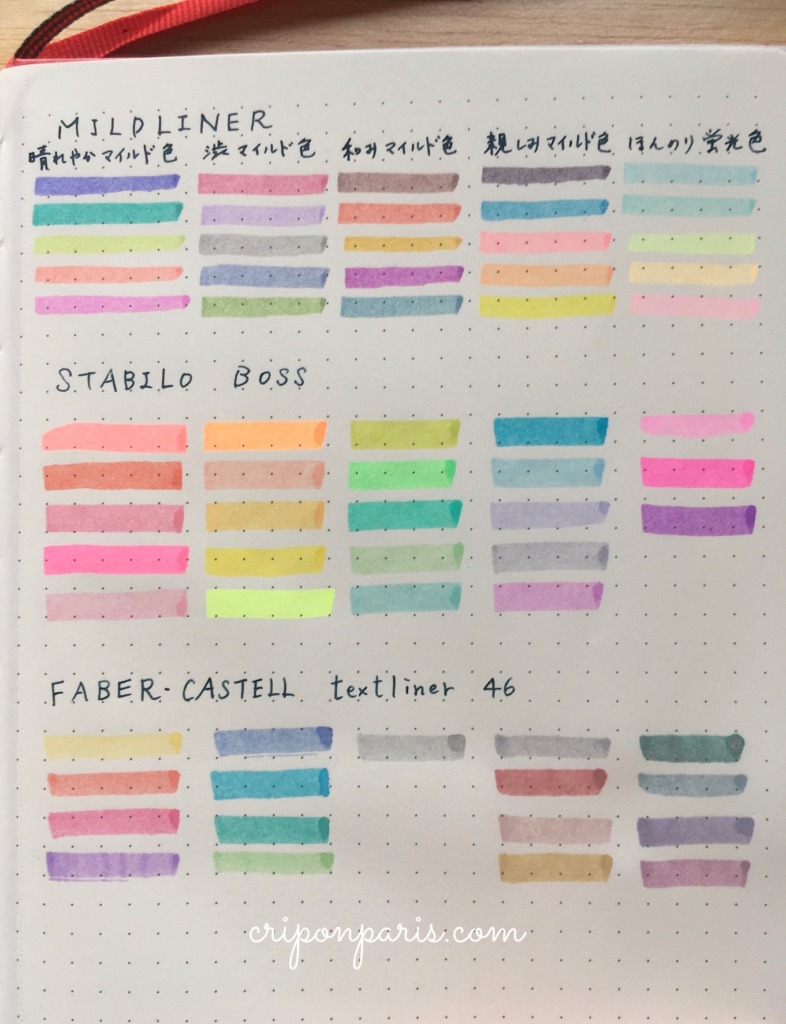 MILDLINER
晴れやかマイルド色 渋マイルド色 和みマイルド色 親しみマイルド色 ほんのり蛍光色
STABILO BOSS
FABER-CASTELL textliner 46
criponparis.com